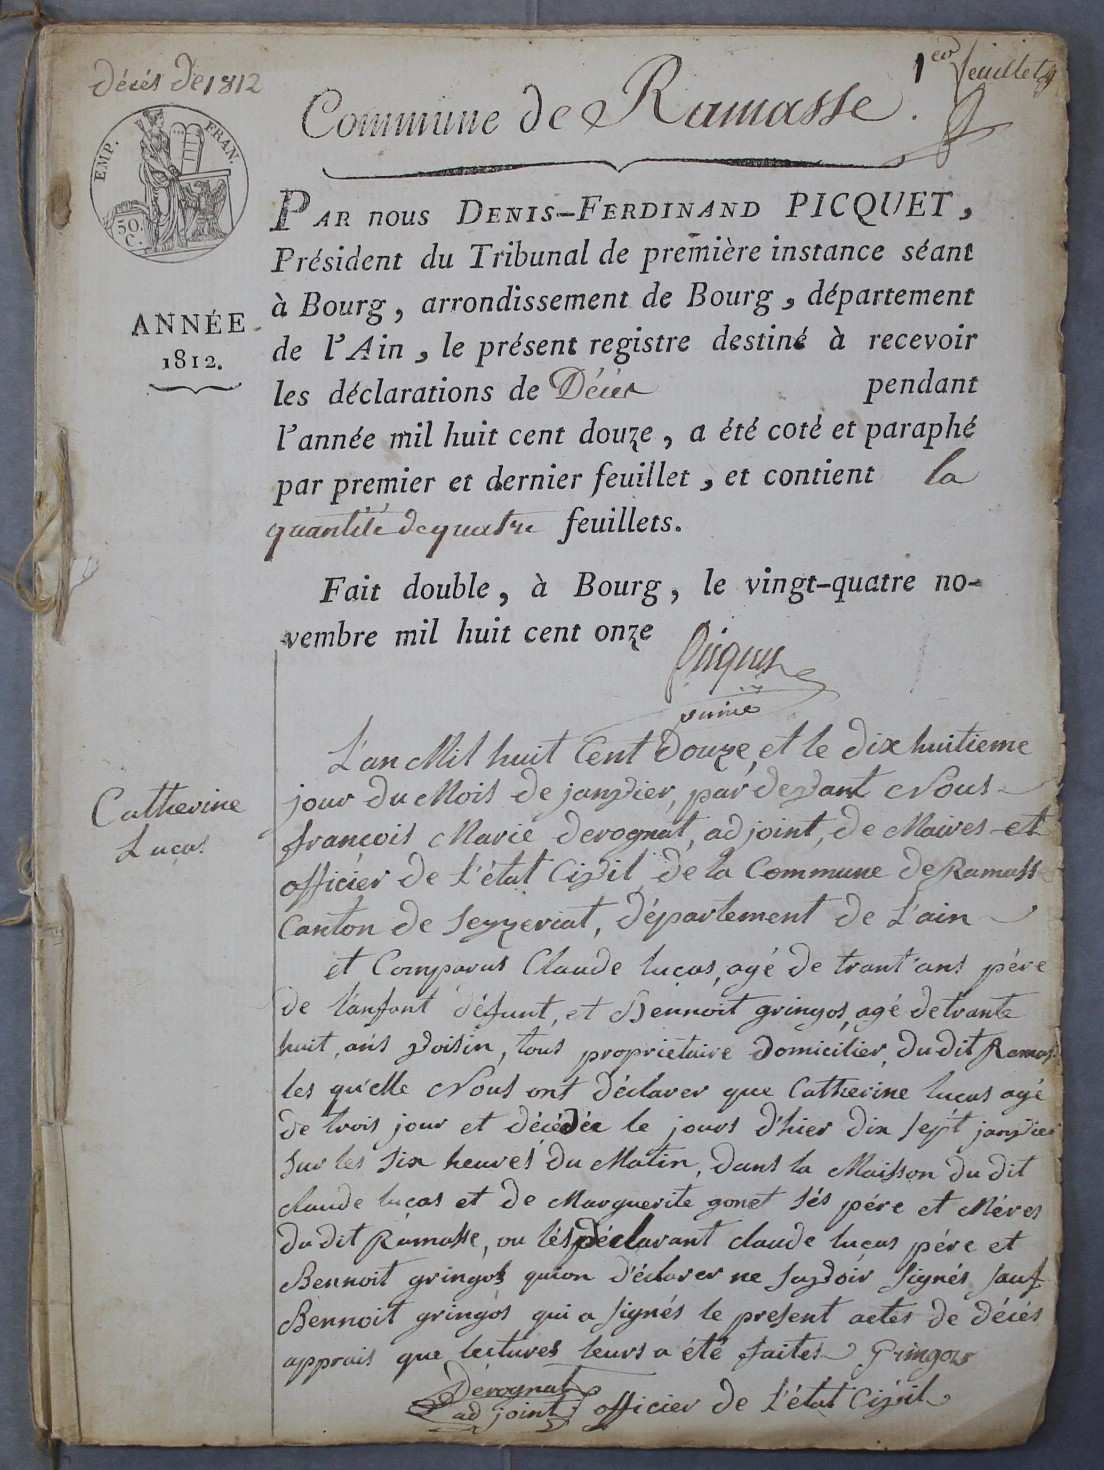 décés de 1812
1er feuillet
Commune de Ramasse.
EMP. FRAN.
50. C.
ANNÉE
1812.
PAR nous DENIS-FERDINAND PICQUET,
Président du Tribunal de première instance séant
à Bourg, arrondissement de Bourg, département
de l'Ain, le présent registre destiné à recevoir
les déclarations de Décés pendant
l'année mil huit cent douze, a été coté et paraphé
par premier et dernier feuillet, et contient la
quantité de quatre feuillets.
Fait double, à Bourg, le vingt-quatre no-
vembre mil huit cent onze
Picquet
Catherine
Lucas
L'an Mil huit Cent Douze, et le dix huitieme
jour du Mois de janvier, par devant Nous
françois Marie derognat, adjoint, de Maires et
officier de L'état Civil de la Commune de Ramasse
Canton de Seyzeriat, département de L'ain
et Comparus Claude lucas, agé de trant ans pére
de l'anfant défunt, et Bennoit gringos, agé de trante
huit, ans voisin, tous proprietaire domicilier, du dit Ramas
les qu'elle Nous ont déclarer que Catherine lucas agé
de trois jour et décédée le jours d'hier dix sept janvier
sur les six heures du Matin, dans la Maisson du dit
claude lucas et de Marguerite gonet sés pére et Méres
du dit Ramasse, ou lés déclarant claude lucas pére et
Bennoit gringos quion d'éclarer ne savoir signés sauf
Bennoit gringos qui a signés le present actes de décés
apprais que lectures leurs a été faites Gringoz
Derognat
adjoint officier de L'état Civil